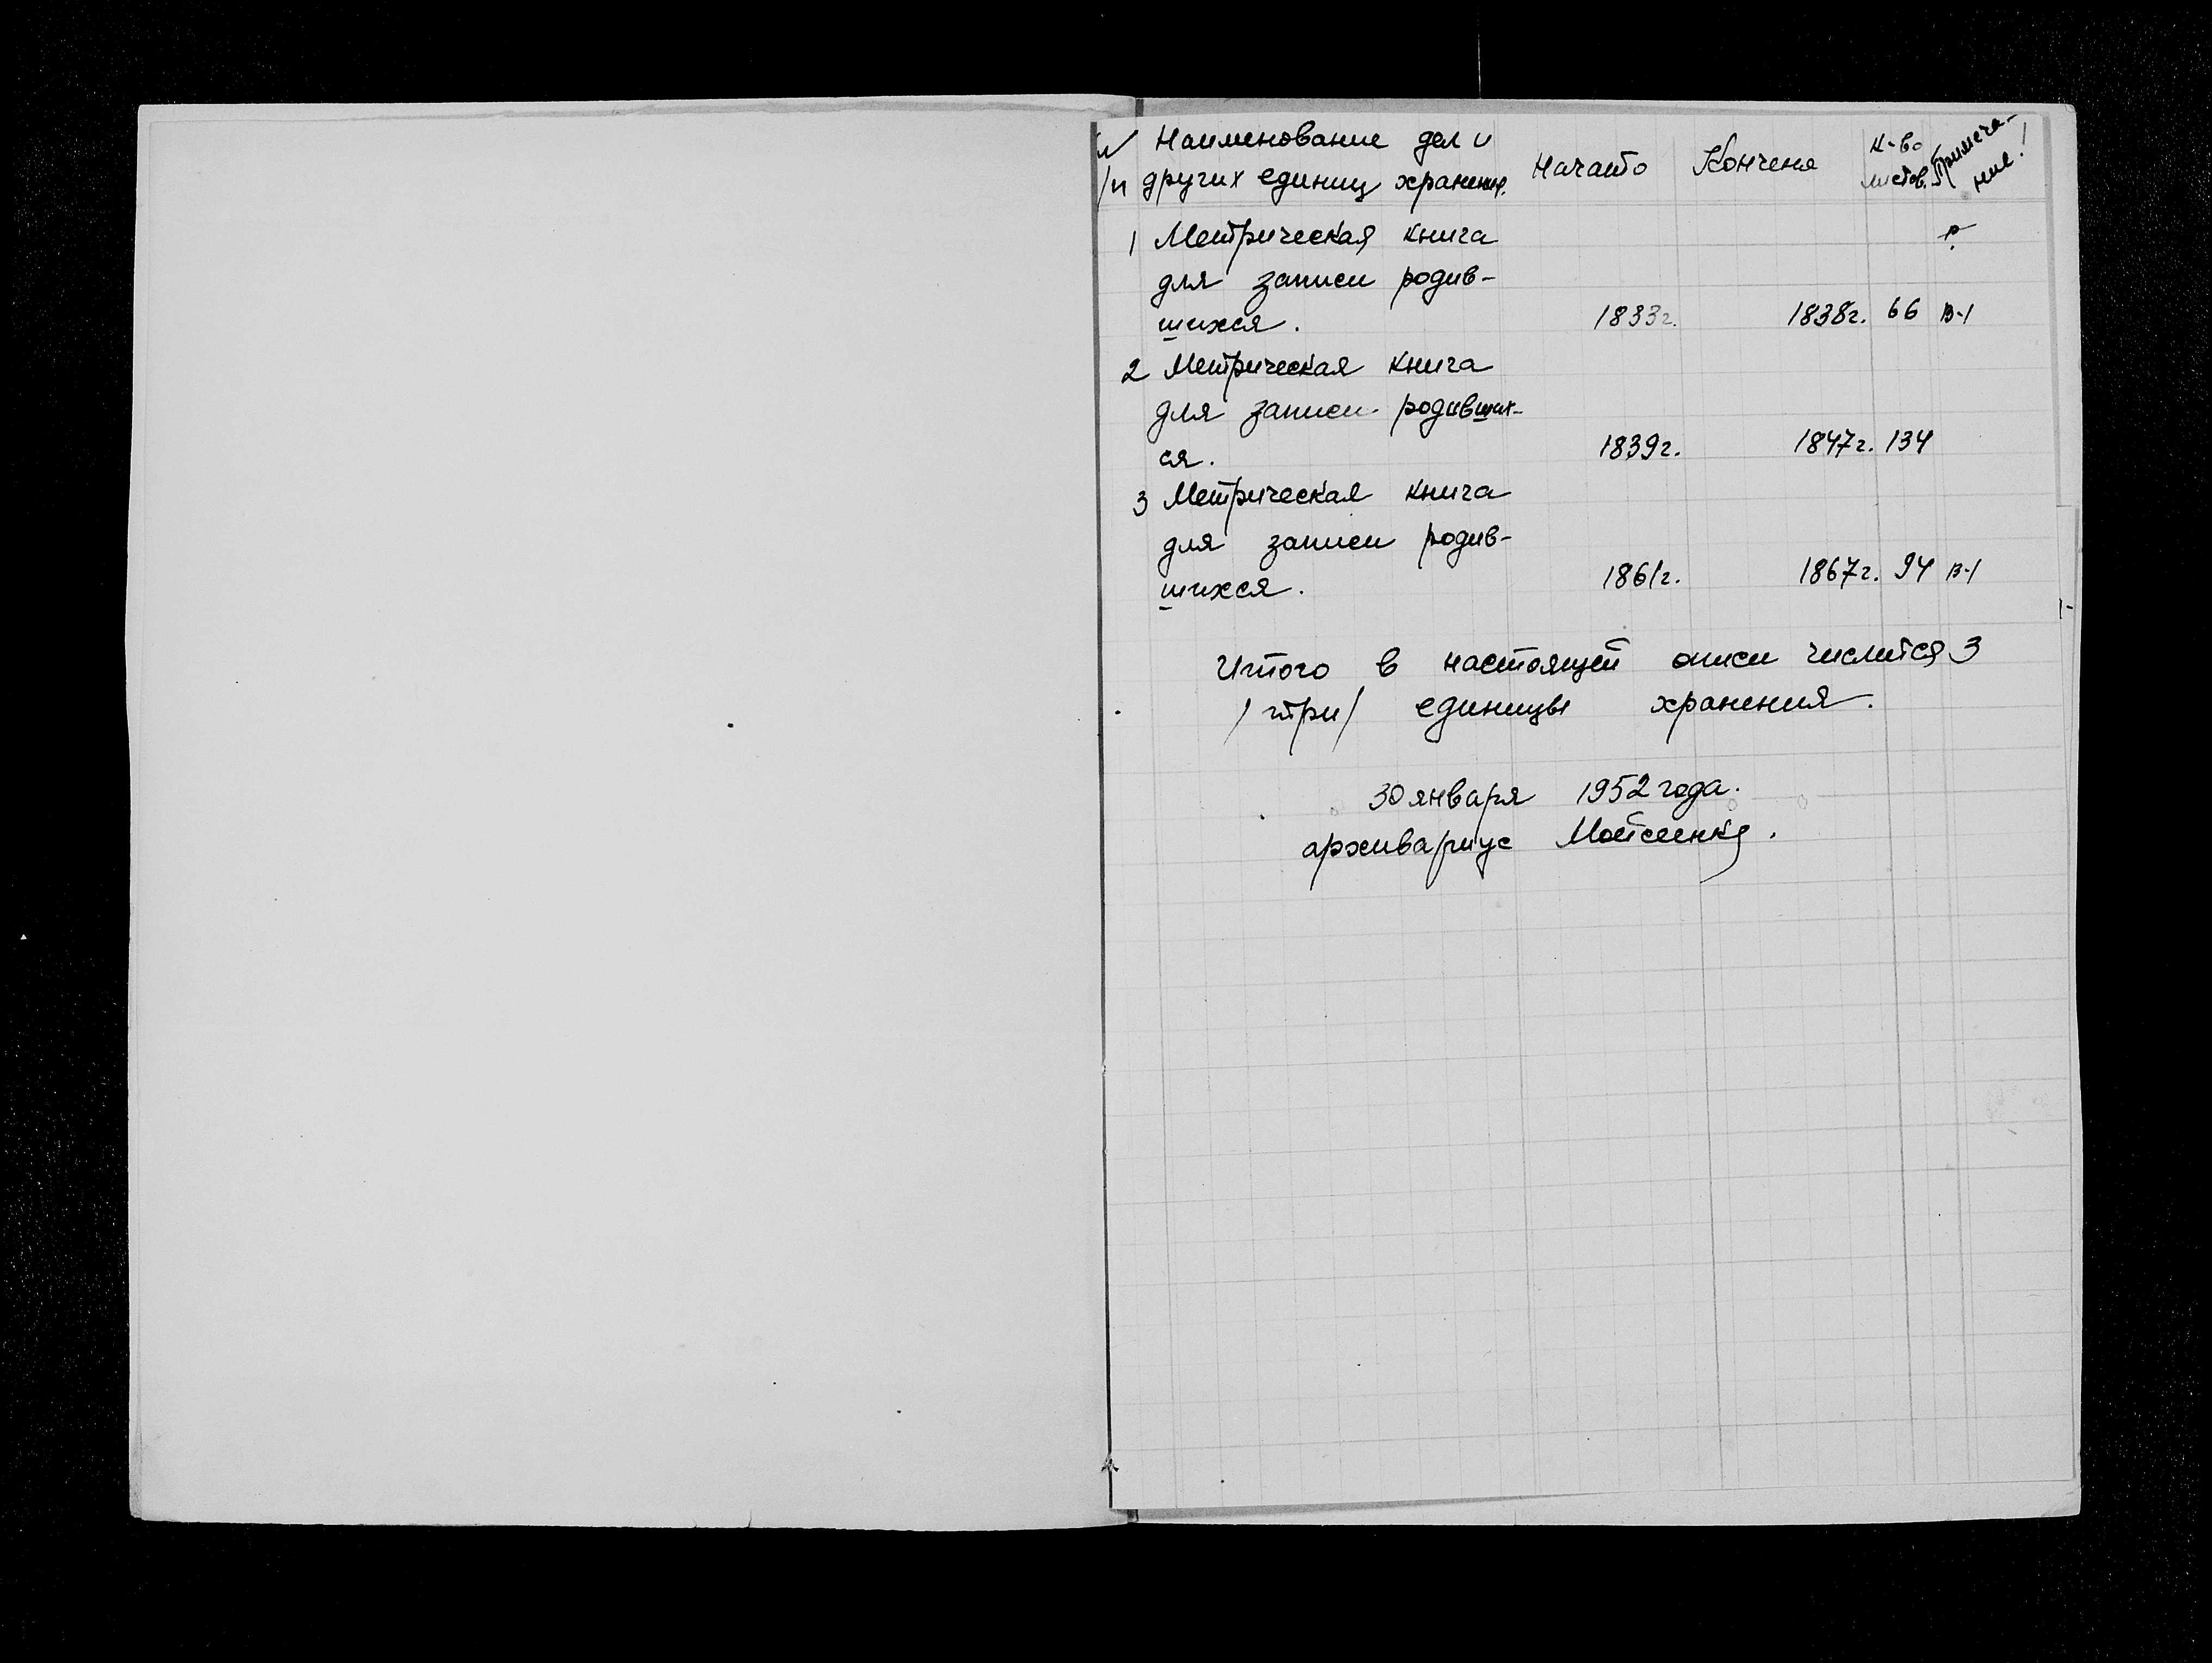 № Наименование дел и Начато Кончено К-во Примеча-
/п других единиц хранения. листов. ние!
1 Метрическая книга
для записи родив-
шихся. 1833г. 1838г. 66 В-1
2 Метрическая книга
для записи родивших-
ся. 1839г. 1847г. 134
3 Метрическая книга
для записи родив-
шихся. 1861г. 1867г. 94 В-1
Итого в настоящей описи числится 3
/три/ единицы хранения.
30 января 1952 года.
архивариус